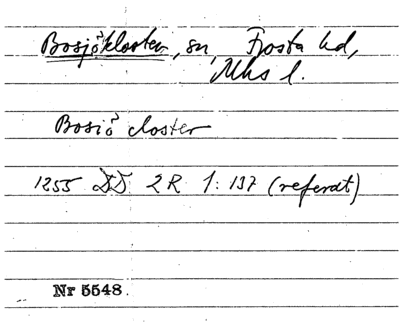 Bosjökloster, sn, Frosta hd,
Mhs l.
Bosiö closter
1255 DD 2R 1:137 (referat)
Nr 5548.